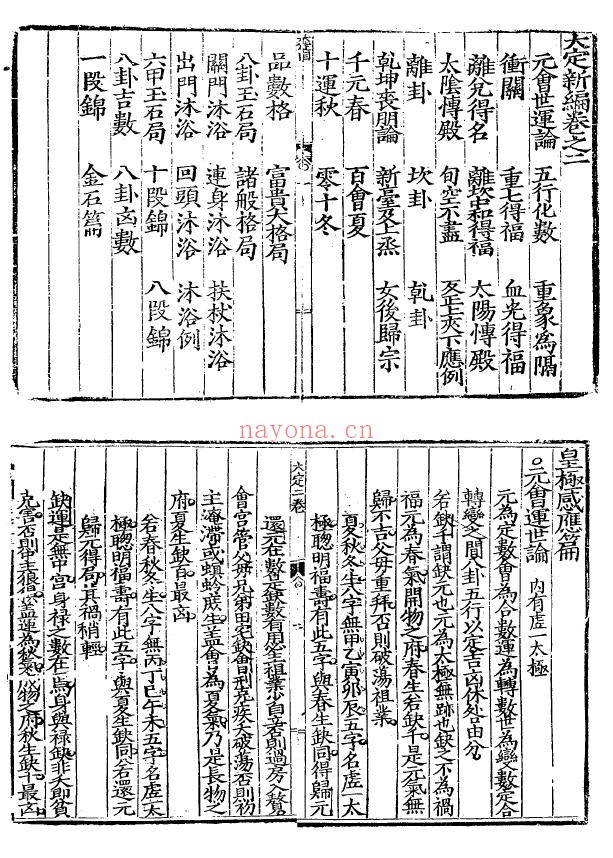 大定新編卷之二
元會世運論 五行化數 重象為隔
衝關 重七得福 血光得福
離兌得名 離坎中和得福 太陽傳殿
太陰傳殿 旬空不盡 歹正夾下應例
離卦 坎卦 乹卦
乾坤喪朋論 新臺及上烝 女後歸宗
千元春 百會夏
十運秋 零十冬
品數格 富貴大格局
八卦玉石局 諸般格局
關門沐浴 連身沐浴 扶杖沐浴
出門沐浴 回頭沐浴 沐浴例
六甲玉石局 十段錦 八段錦
八卦吉數 八卦凶數
一段錦 金石篇
nayona.cn
皇極感應篇
○元會運世論 內有虛一太極
元為定數會為合數運為轉數世為變數定合
轉變之間八卦五行以定吉凶休咎由分
若缺千謂缺元也元為太極無跡也缺之不為禍
福元為春氣開物之府春生若缺千是元氣無
歸不吉父毋重拜否則破湯祖業
夏秋冬生八字無甲乙寅卯辰五字名虛一太
極聰明福壽有此五字與春生缺同得歸元
還元在數是缺數有用必主祖業少自立否則過房入贅
會宮管父毋兄弟田宅缺會日刑克疾久破湯否則初
主淹滯或螟蛉庶生盖會為夏氣乃是長物之
府夏生缺百最凶
若春秋冬生八字無丙丁巳午未五字名虛一太
極聰明福壽有此五字與夏生缺同若還元
歸元得局其禍稍輕
缺運是無中宮身祿之數在焉身與祿缺非夭即貧
克害否則中主狼盖運為秋氣物之府秋生缺十最凶
大定二卷